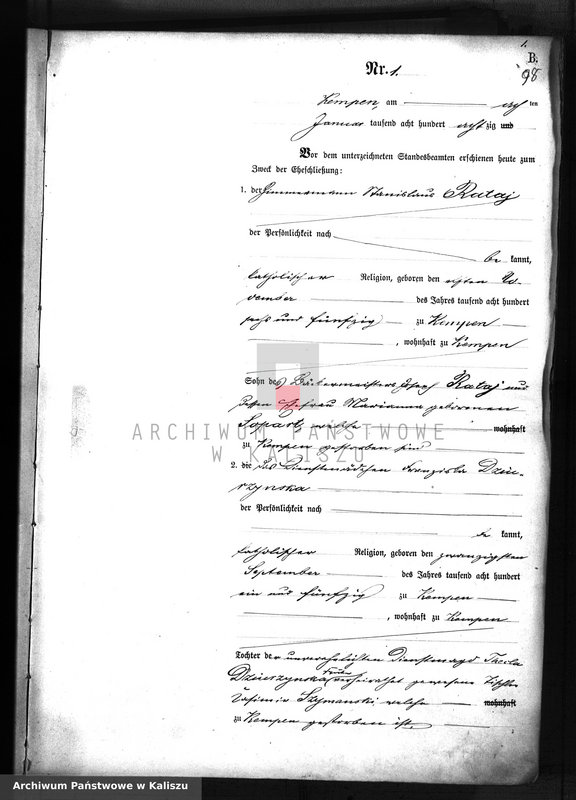 1.
B.
98
Nr. 1.
Kempen, am acht ten
Januar tausend acht hundert achtzig und
Vor dem unterzeichneten Standesbeamten erschienen heute zum
Zweck der Eheschließung:
1. der Zimmermann Stanislaus Rataj
der Persönlichkeit nach
be kannt,
katholischer Religion, geboren den ersten No-
vember des Jahres tausend acht hundert
sechs und fünfzig zu Kempen
, wohnhaft zu Kempen
Sohn des Bäckermeisters Josef Rataj und
dessen Ehefrau Marianna geborenen
welche wohnhaft
zu Kempen gestorben sind
2. die das Dienstmädchen Franziska Dziu-
rzynska
der Persönlichkeit nach
be kannt,
katholischer Religion, geboren den zwanzigsten
September des Jahres tausend acht hundert
ein und fünfzig zu Kempen
, wohnhaft zu Kempen
Tochter der unverehelichten Dienstmagd Thecla
Dziurzynska früher verheirathet gewesene
Casimir Szymanski, welche wohnhaft
zu Kempen gestorben ist.
ARCHIWUM PAŃSTWOWE
W KALISZU
Archiwum Państwowe w Kaliszu